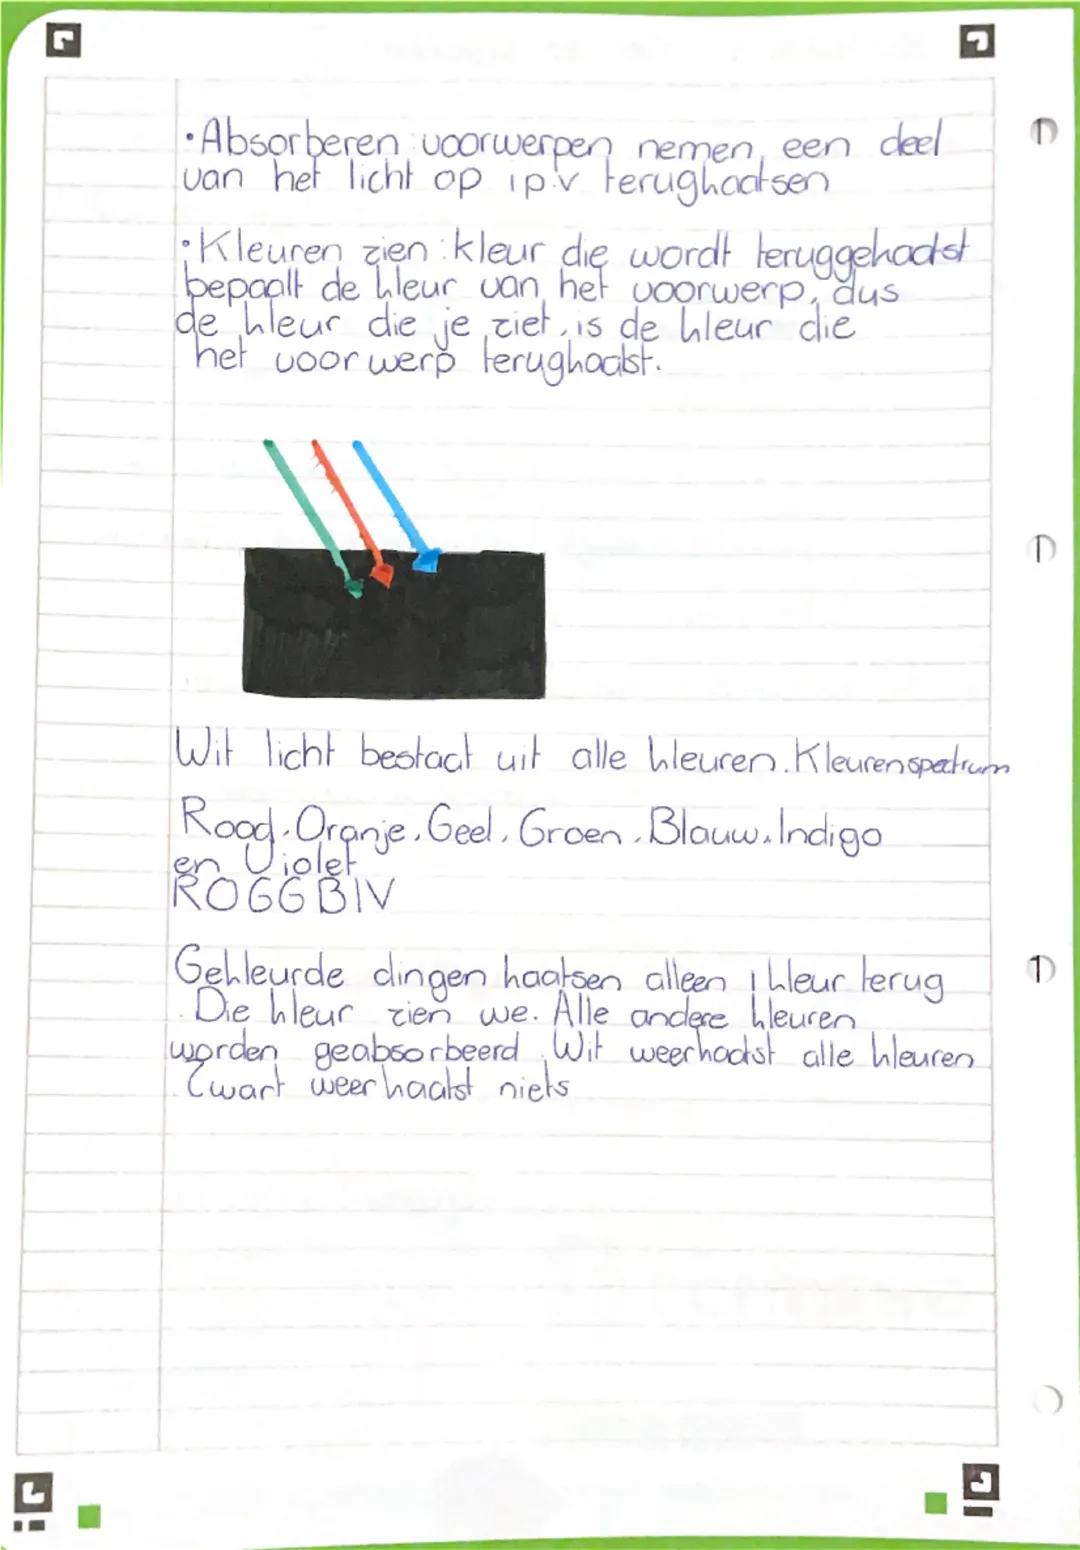 • Absorberen: voorwerpen nemen een deel
van het licht op i.p.v terugkaatsen
• Kleuren zien: kleur die wordt teruggekaatst
bepaalt de kleur van het voorwerp, dus
de kleur die je ziet, is de kleur die
het voorwerp terugkaatst.
Wit licht bestaat uit alle kleuren. Kleurenspectrum
Rood, Oranje, Geel, Groen, Blauw, Indigo
en Violet
ROGGBIV
Gekleurde dingen kaatsen alleen 1 kleur terug
Die kleur zien we. Alle andere kleuren
worden geabsorbeerd. Wit weerkaatst alle kleuren
Zwart weerkaatst niets